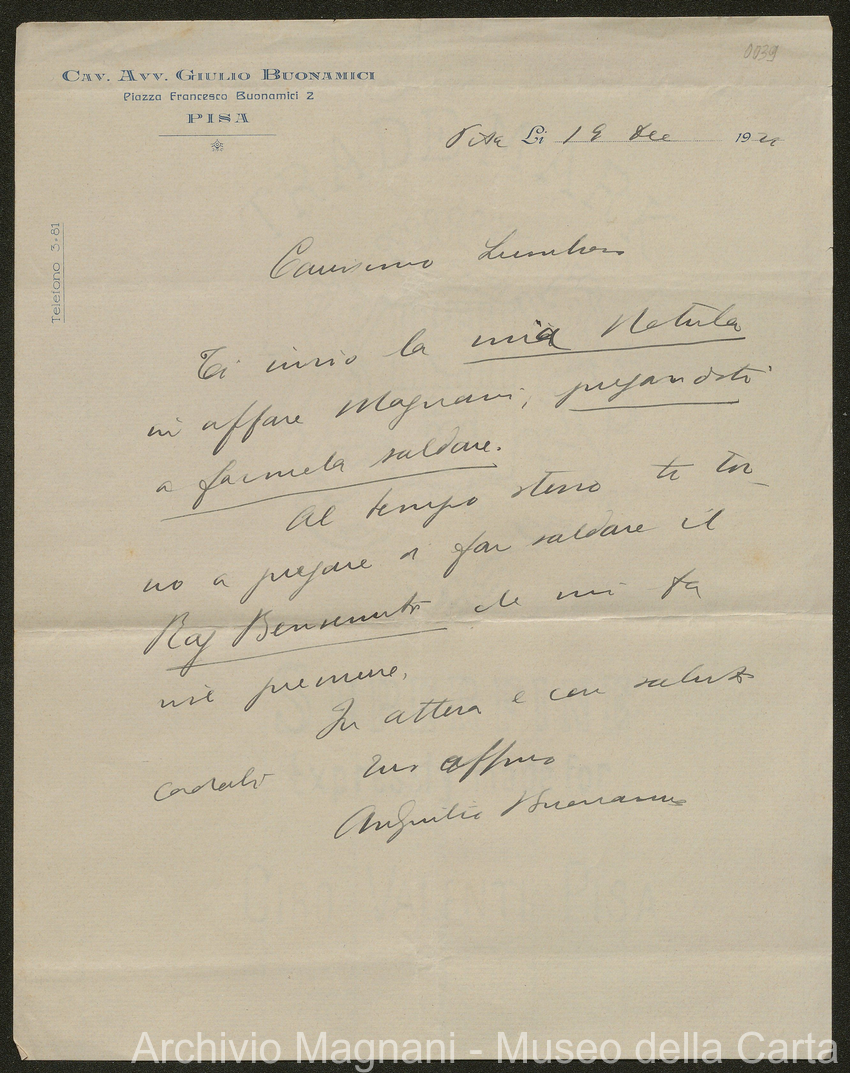 0039
CAV. AVV. GIULIO BUONAMICI
Piazza Francesco Buonamici 2
PISA
Pisa Li 19 Dec 19
Telefono 3-81
Carissimo
Ti invio la mia Notula
in affare Magnani, pregandoti
a farmela saldare.
Al tempo stesso ti tor-
no a pregare di far saldare il
Rag Benvenuti che mi fa
premure.
In attesa e con saluti
cordiali tuo affmo
Avv Giulio Buonamici
Archivio Magnani - Museo della Carta